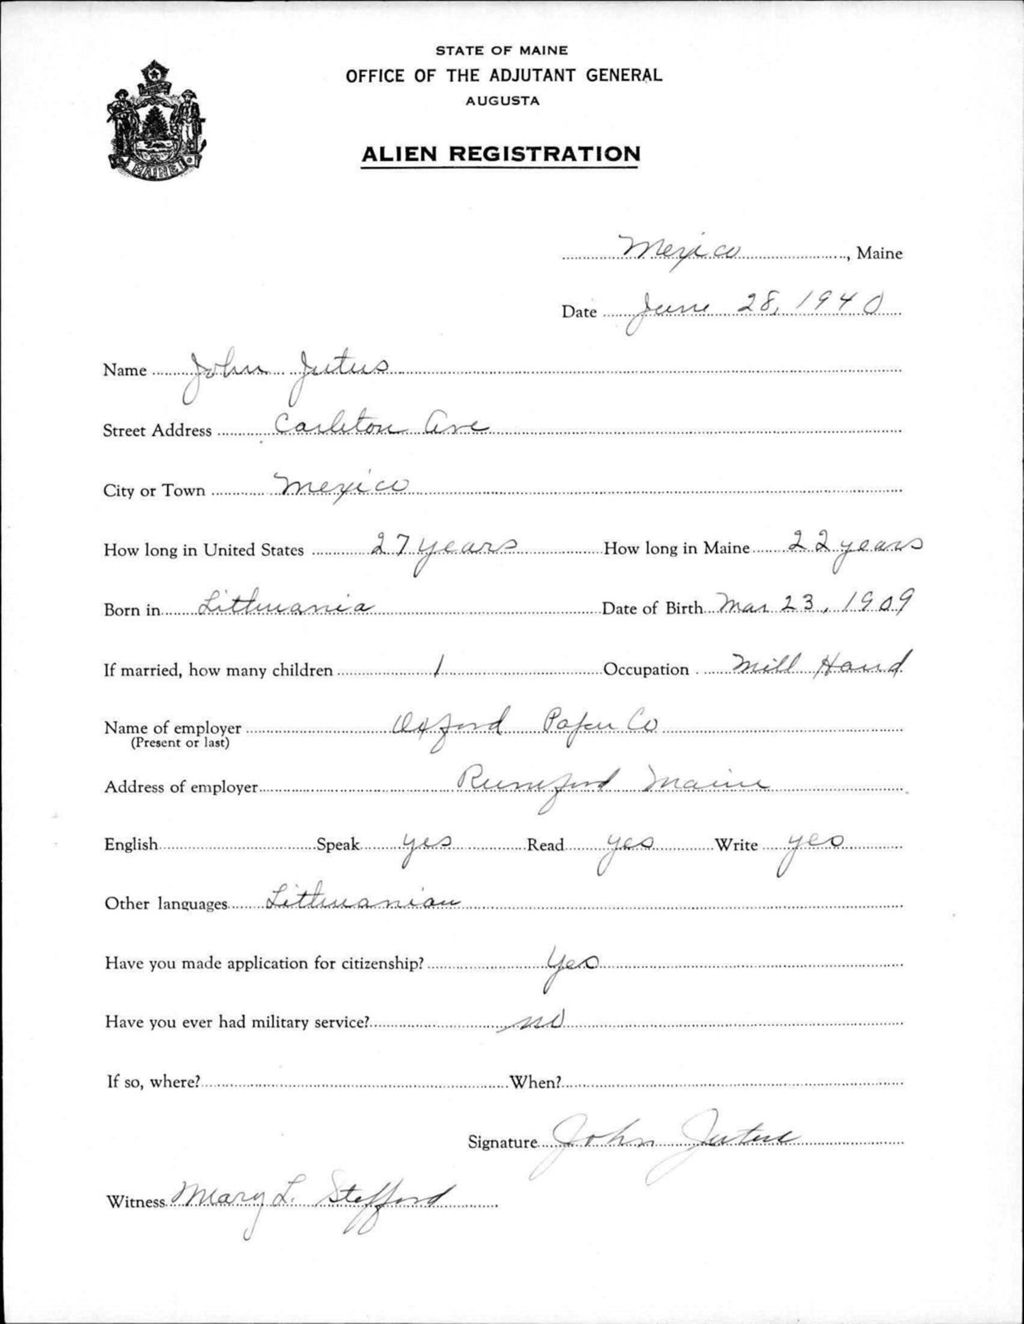 STATE OF MAINE
OFFICE OF THE ADJUTANT GENERAL
AUGUSTA
ALIEN REGISTRATION
MAINE
Mexico, Maine
Date June 28, 1940
Name John Jutus
Street Address Carleton Ave
City or Town Mexico
How long in United States 27 years How long in Maine 22 years
Born in Lithuania Date of Birth Mar 23, 1909
If married, how many children 1 Occupation Mill Hand
Name of employer Oxford Paper Co
(Present or last)
Address of employer Rumford Maine
English Speak yes Read yes Write yes
Other languages Lithuanian
Have you made application for citizenship? Yes
Have you ever had military service? no
If so, where? When?
Signature John Jutus
Witness Mary L. Stafford